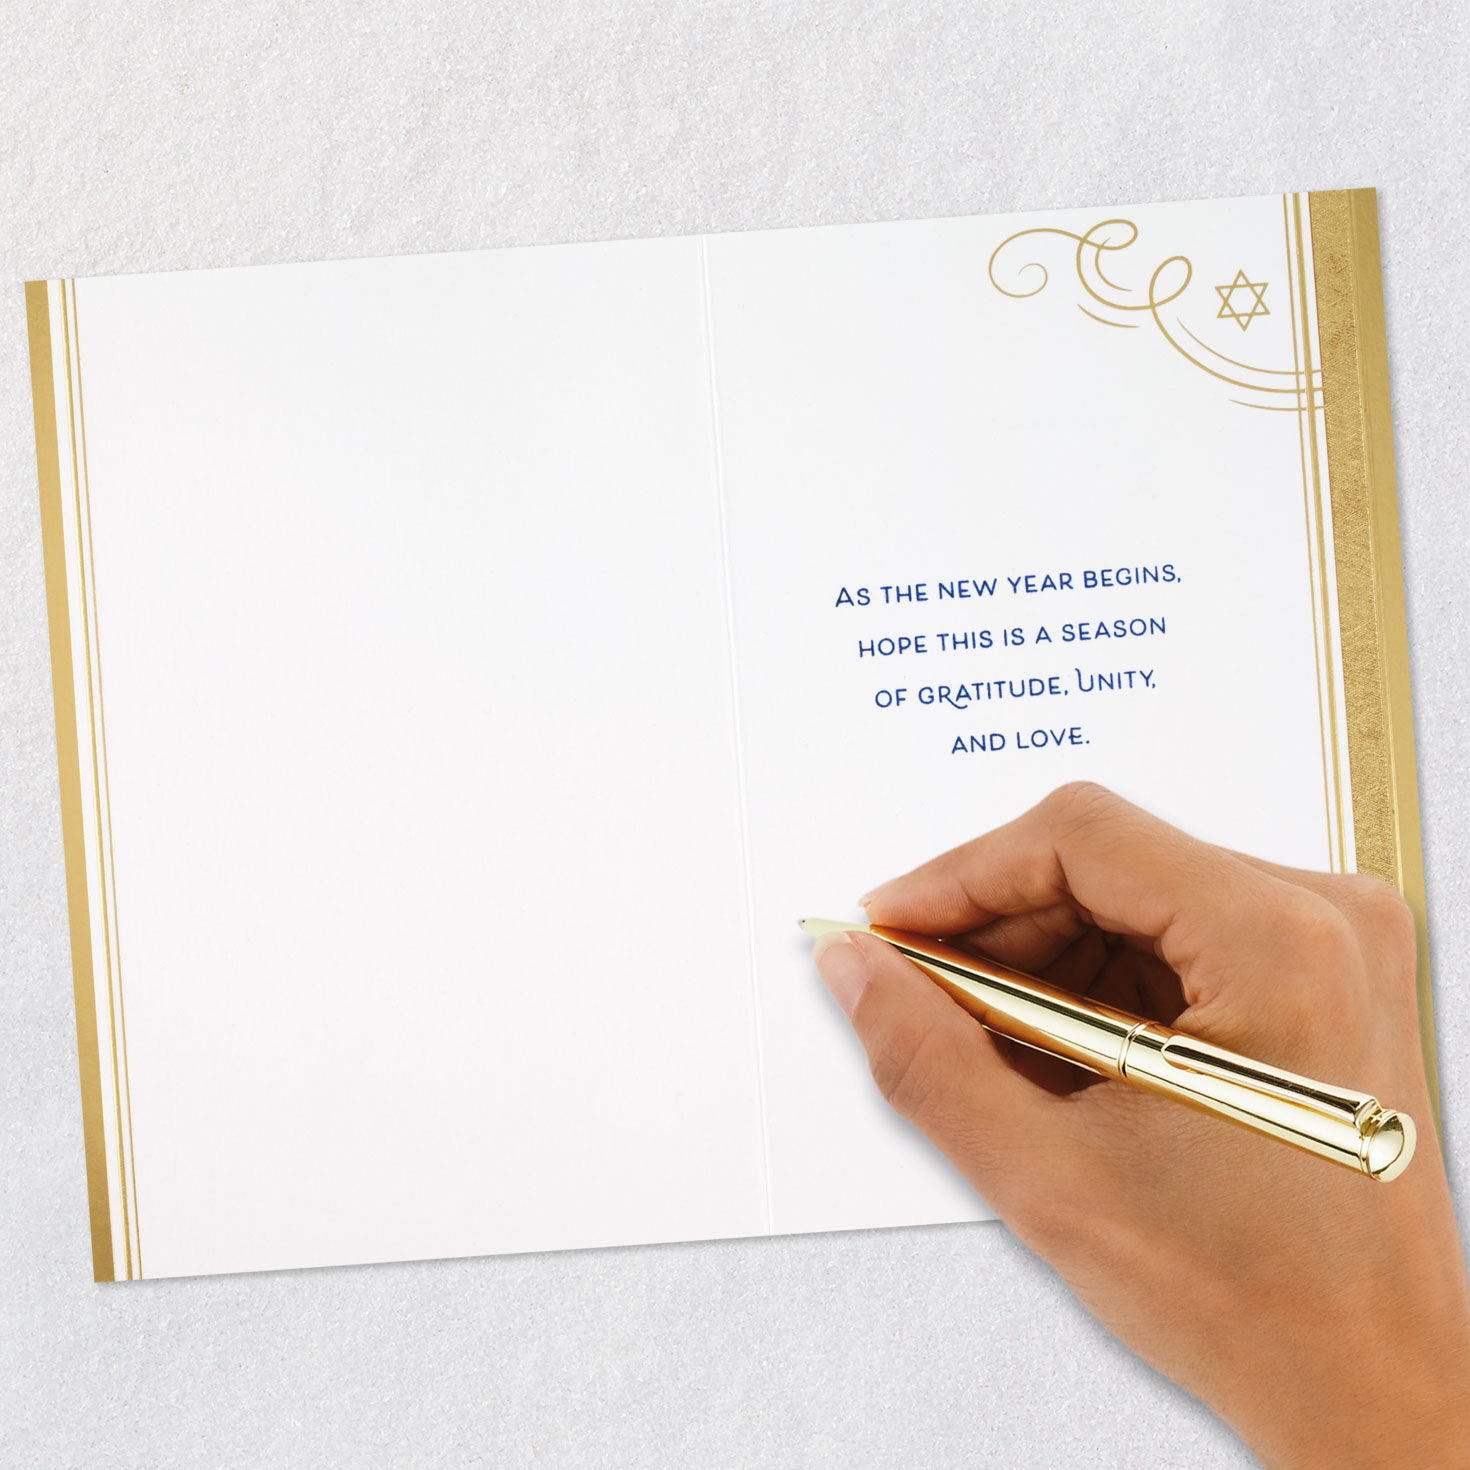 AS THE NEW YEAR BEGINS,
HOPE THIS IS A SEASON
OF GRATITUDE, UNITY,
AND LOVE.